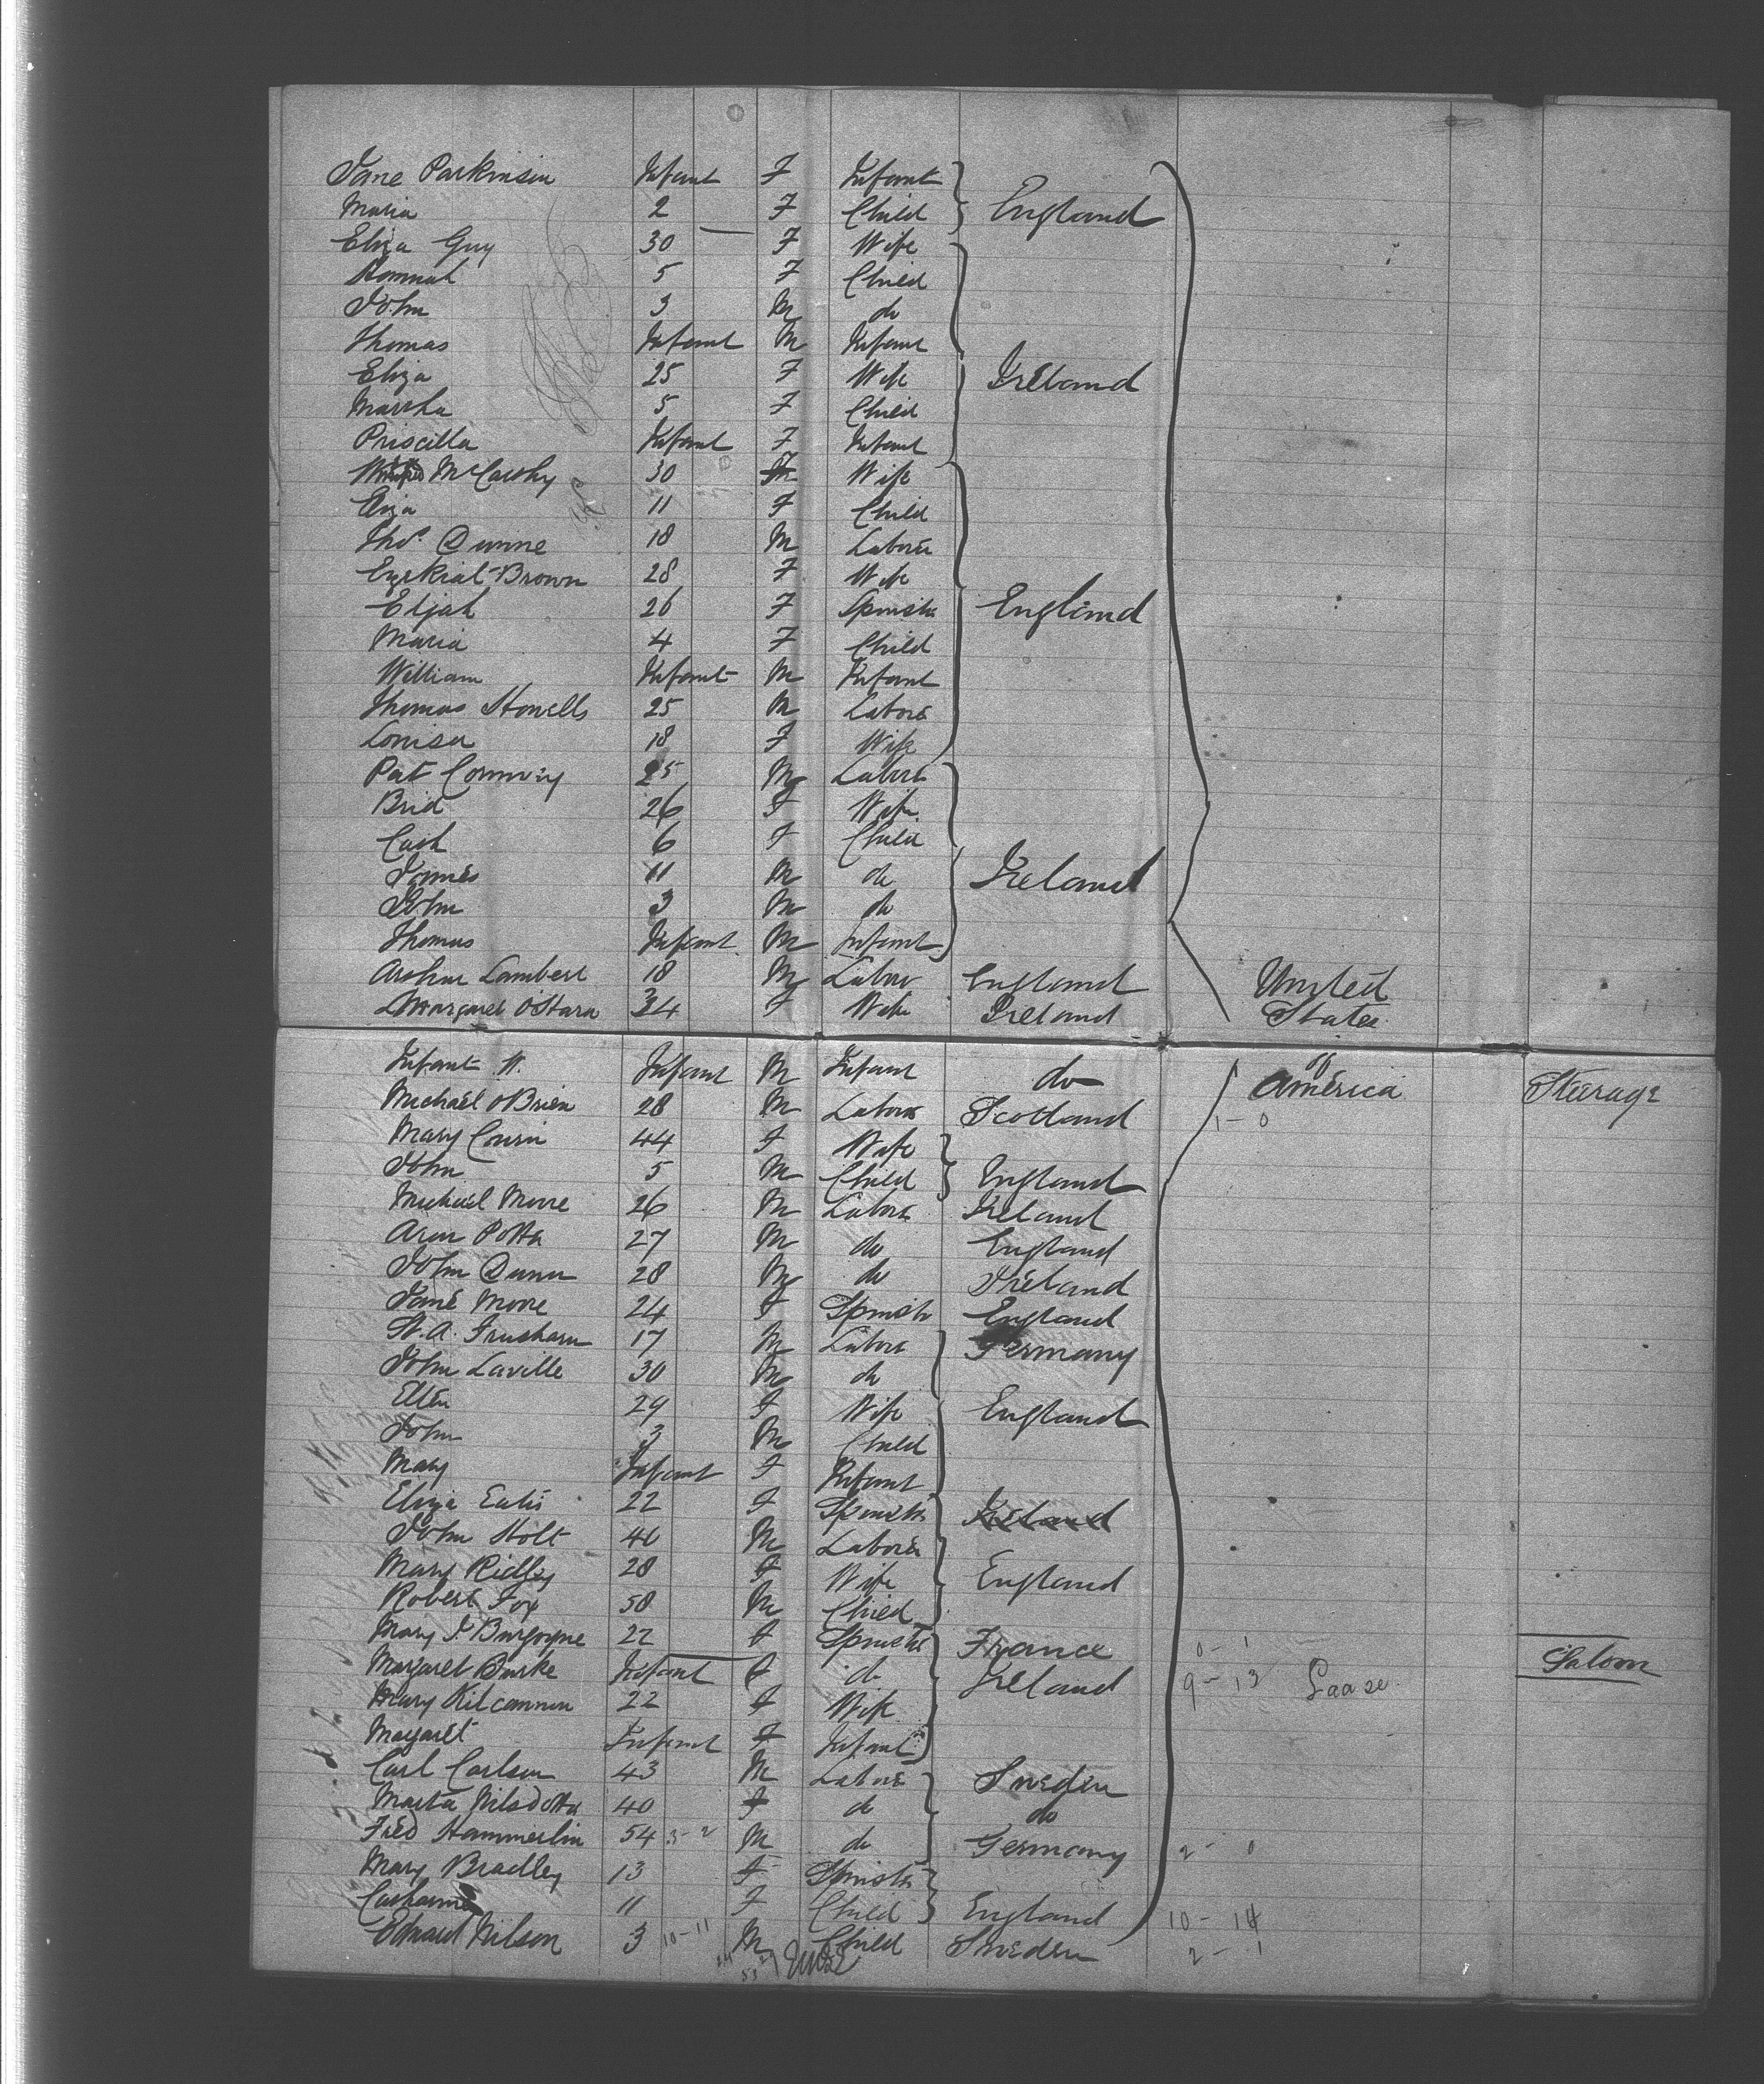 Jane Parkinson Infant F Infant
Maria 2 F Child England
Eliza Guy 30 F Wife
Hannah 5 F Child
John 3 M do
Thomas Infant M Infant
Eliza 25 F Wife Ireland
Martha 5 F Child
Priscilla Infant F Infant
McCarthy 30 F Wife
Eliza 11 F Child
Thos. Dunne 18 M Laborer
Ezekial Brown 28 F Wife
Elijah 26 F Spinster England
Maria 4 F Child
William Infant M Infant
Thomas Howells 25 M Laborer
Louisa 18 F Wife
Pat Conway 25 M Laborer
Brid 26 F Wife
Cath 6 F Child
James 11 M do Ireland
John 3 M do
Thomas Infant M Infant
Arthur Lambert 18 M Labor England United
Margaret O'Hara 34 F Wife Ireland States
Infant H. Infant M Infant do of America Steerage
Michael OBrien 28 M Laborer Scotland 1 - 0
Mary 44 F Wife
John 5 M Child England
Michael Moore 26 M Laborer Ireland
Potta 27 M do England
John Dunn 28 M do Ireland
Jane Moore 24 F Spinster England
17 M Laborer Germany
John Laville 30 M do
Ellen 29 F Wife England
John 3 M Child
Mary Infant F Infant
Eliza 22 F Spinster Ireland
John Holt 40 M Laborer
Mary Ridley 28 F Wife England
Robert Fox 58 M Child
Mary J. Burgoyne 22 F Spinster France 0 - 1 Saloon
Margaret Burke Infant F do Ireland 9 - 13
Mary Kilcannon 22 F Wife
Margaret Infant F Infant
Carl Carlson 43 M Laborer Sweden
Marta Nilsdotta 40 F do do
Fred Hammerlin 54 3-2 M do Germany 2 - 0
Mary Bradley 13 F Spinster
Catharine 11 F Child England 10 - 14
Edward Nilson 3 10-11 M Child Sweden 2 - 1